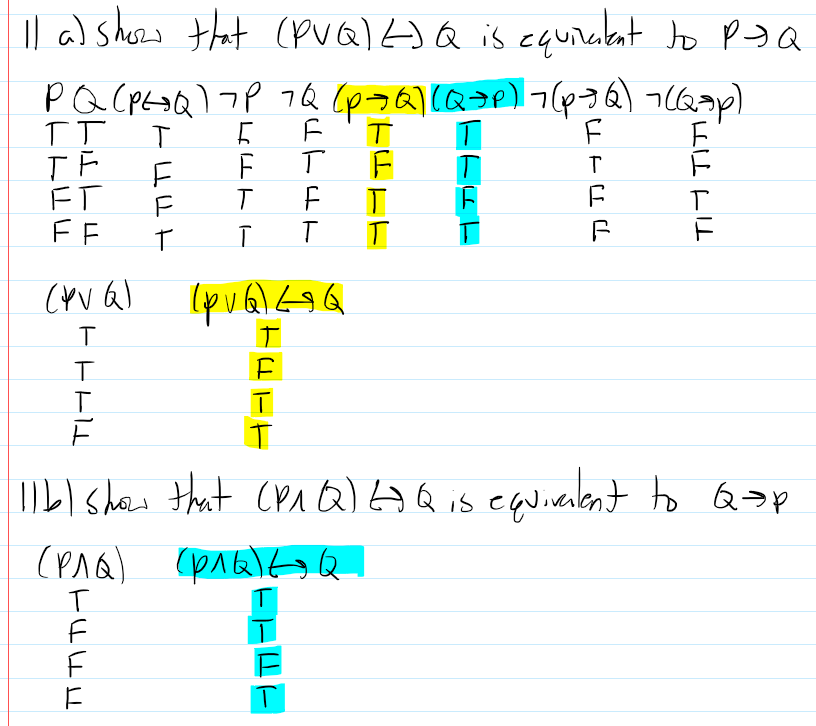 11 a) show that (P∨Q)↔Q is equivalent to P→Q
P Q (P↔Q) ¬P ¬Q (P→Q) (Q→P) ¬(P→Q) ¬(Q→P)
T T T F F T T F F
T F F F T F T T F
F T F T F T F F T
F F T T T T T F F
(P∨Q) (P∨Q)↔Q
T T
T F
T T
F T
11b) show that (P∧Q)↔Q is equivalent to Q→P
(P∧Q) (P∧Q)↔Q
T T
F T
F F
F T